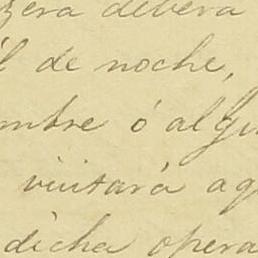 zera deberá
l de noche,
mbre ó algu
visitará aq
dicha opera